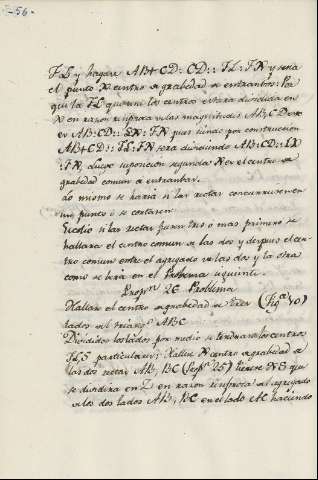 -56-
FLS y hagase AB+CD: CD:: FL: FN y sera
el punto N centro de grabedad de entrambos: Por
que la FL que une los centros estara dividida en
N en razon reciproca de las magnitudes AB, CD esto
es AB: CD:: LN: FN pues siendo por construccion
AB+CD:: FL: FN sera dividiendo AB: CD:: LN
: FN, luego suposicion segunda N es el centro de
grabedad comun de entrambas.
Lo mismo se haria si las rectas concurriesen en
un punto o se cortasen
Escolio si las rectas fueren tres o mas primero se
hallara el centro comun de las dos y despues el cen
tro comun entre el agregado de las dos y la otra
como se hara en el Problema siguiente
Propn 26 Problema
Hallar el centro de grabedad de tres (Figa 40)
lados del triango ABC
Divididos los lados por medio se tendran los centros
FLS particulares; Hallese N centro de grabedad de
las dos rectas AB, BC (Propn 25) tirese NS que
se dividira en Z en razon reciproca del agregado
de los dos lados AB, BC en el lado AC haciendo